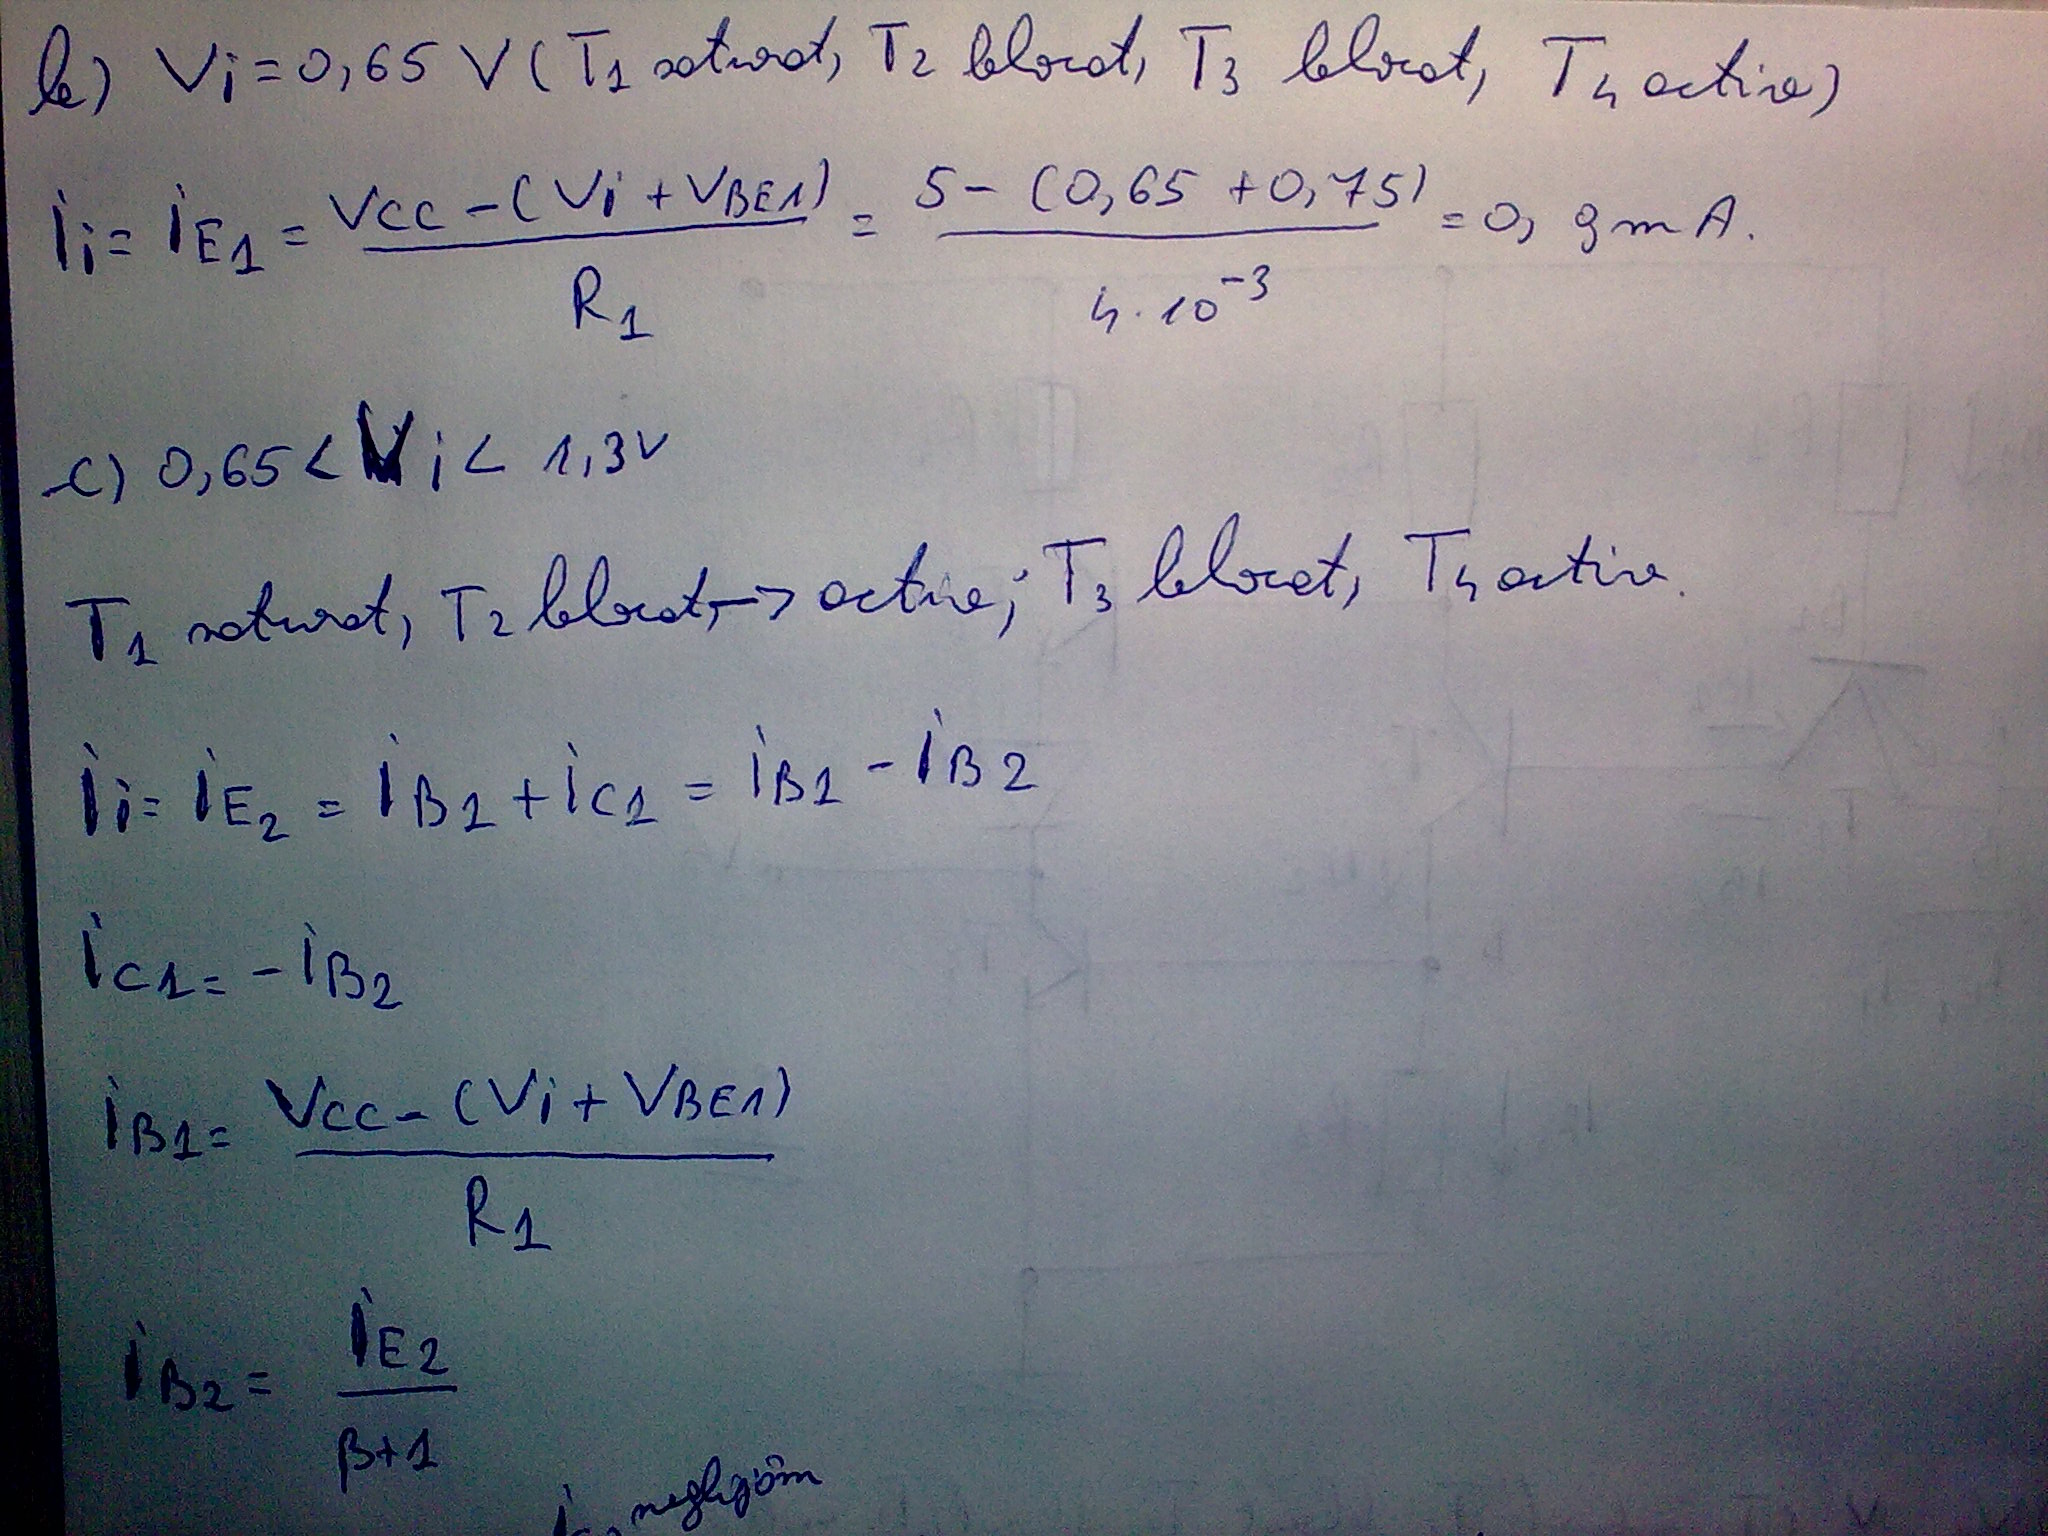 b) Vi=0,65 V (T1 saturat, T2 blocat, T3 blocat, T4 active)
ii = iE1 = VCC-(Vi+VBE1) / R1 = 5-(0,65+0,75) / 4·10^-3 = 0,9mA.
c) 0,65 < Vi < 1,3V
T1 saturat, T2 blocat, -> active; T3 blocat, T4 active.
ii = iE2 = iB1 + iC1 = iB1 - iB2
iC1 = -iB2
iB1 = VCC-(Vi+VBE1) / R1
iB2 = iE2 / β+1
neglijăm